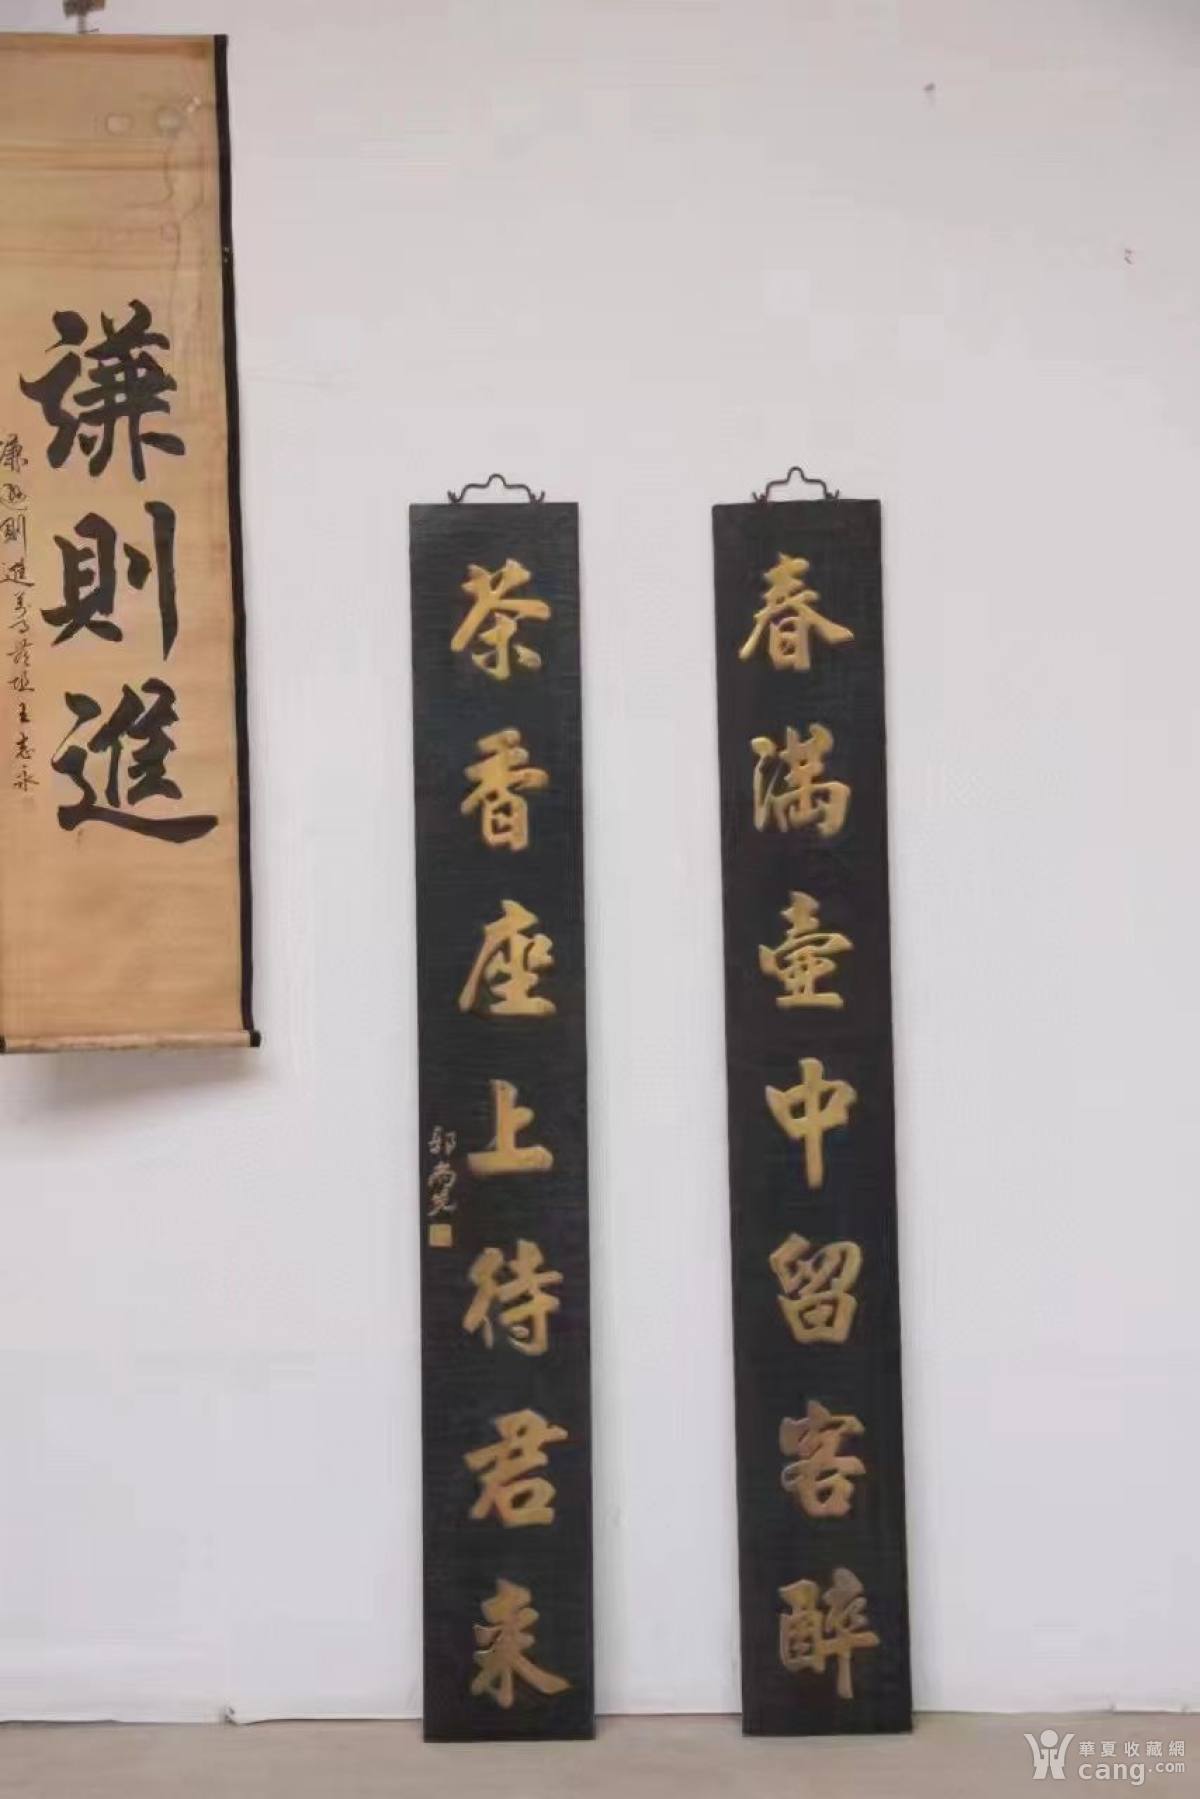 春滿壺中留客醉
茶香座上待君来
郭尚先
謙則進
謙遜則進
王志永
華夏收藏網
cang.com